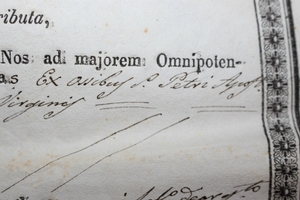 ributa,
Nos ad majorem Omnipoten-
as Ex ossibus S. Petri Apost.
Virginis